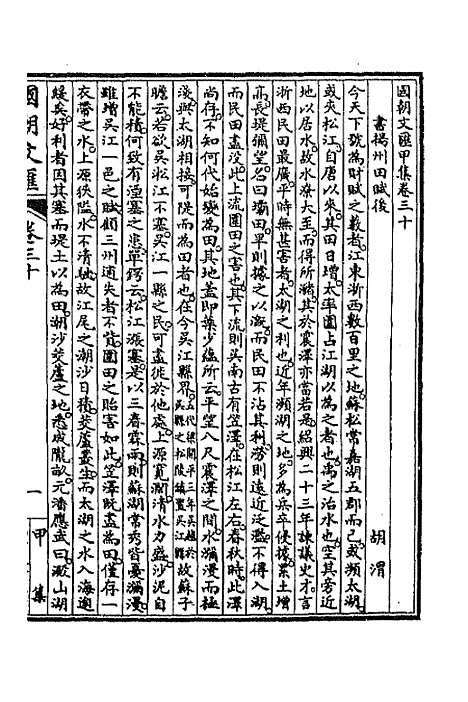 國朝文匯甲集卷三十
書揚州田賦後
胡渭
今天下號為財賦之藪者江東浙西數百里之地蘇松常嘉湖五郡而已或瀕太湖
或夾松江自唐以來其田日增大率圍占江湖以為之者也禹之治水也空其旁近
地以居水故水潦大至而得所豬其於震澤亦當若是紹興二十三年諫議史才言
浙西民田最廣平時無甚害者太湖之利也近年瀕湖之地多為兵卒侵據累土增
高長堤彌望名曰壩田旱則據之以溉而民田不沾其利澇則遠近泛濫不得入湖
而民田盡沒此上流圍田之害也其下流則吳南古有笠澤在松江左右春秋時此澤
尚存不知何代始變為田其地蓋即葉少蘊所云平望八尺震澤之間水瀰漫而極
淺與太湖相接可隄而為田者也在今吳江縣界五代梁開平三年吳越於吳縣之松陵鎮置吳江縣故蘇子
瞻云若欲吳淞江不塞吳江一縣之民可盡徙於他處上源寬闊清水力盛沙泥自
不能積何致有湮塞之患單鍔云松江漲塞是以三春霖雨則蘇湖常秀皆憂瀰漫
雖增吳江一邑之賦顧三州逋失者不貲圍田之貽害如此笠澤既盡為田僅存一
衣帶之水上源狹隘水不清駛故江尾之潮沙日積茭蘆叢生而太湖之水入海逾
緩矣好利者因其塞而堤土以為田潮沙茭蘆之地悉成隴畝元潘應武曰澱山湖
國朝文匯
卷三十
一
甲集